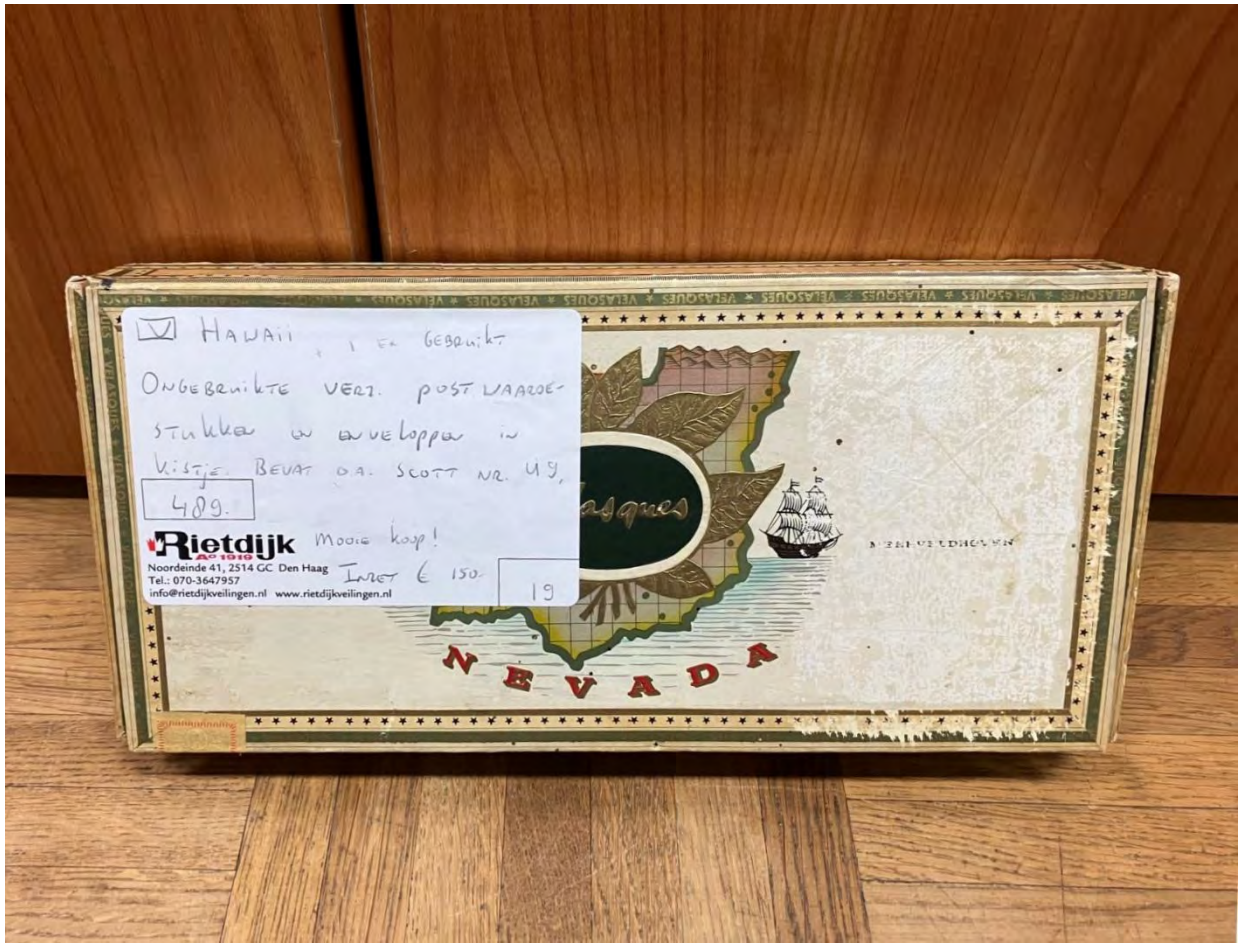 VELASQUES ★ VELASQUES ★ VELASQUES ★ VELASQUES ★ VELASQUES ★ VELASQUES ★ VELASQUES
V HAWAII
EN GEBRUIKT
ONGEBRUIKTE VERZ. POSTWAARDE-
STUKKEN EN ENVELOPPEN IN
KISTJE. BEVAT O.A. SCOTT NR. U9,
489.-
Rietdijk
Aº 1919
MOOIE KOOP!
Noordeinde 41, 2514 GC Den Haag
Tel.: 070-3647957
info@rietdijkveilingen.nl www.rietdijkveilingen.nl
INZET € 150.-
19
asques
NEVADA